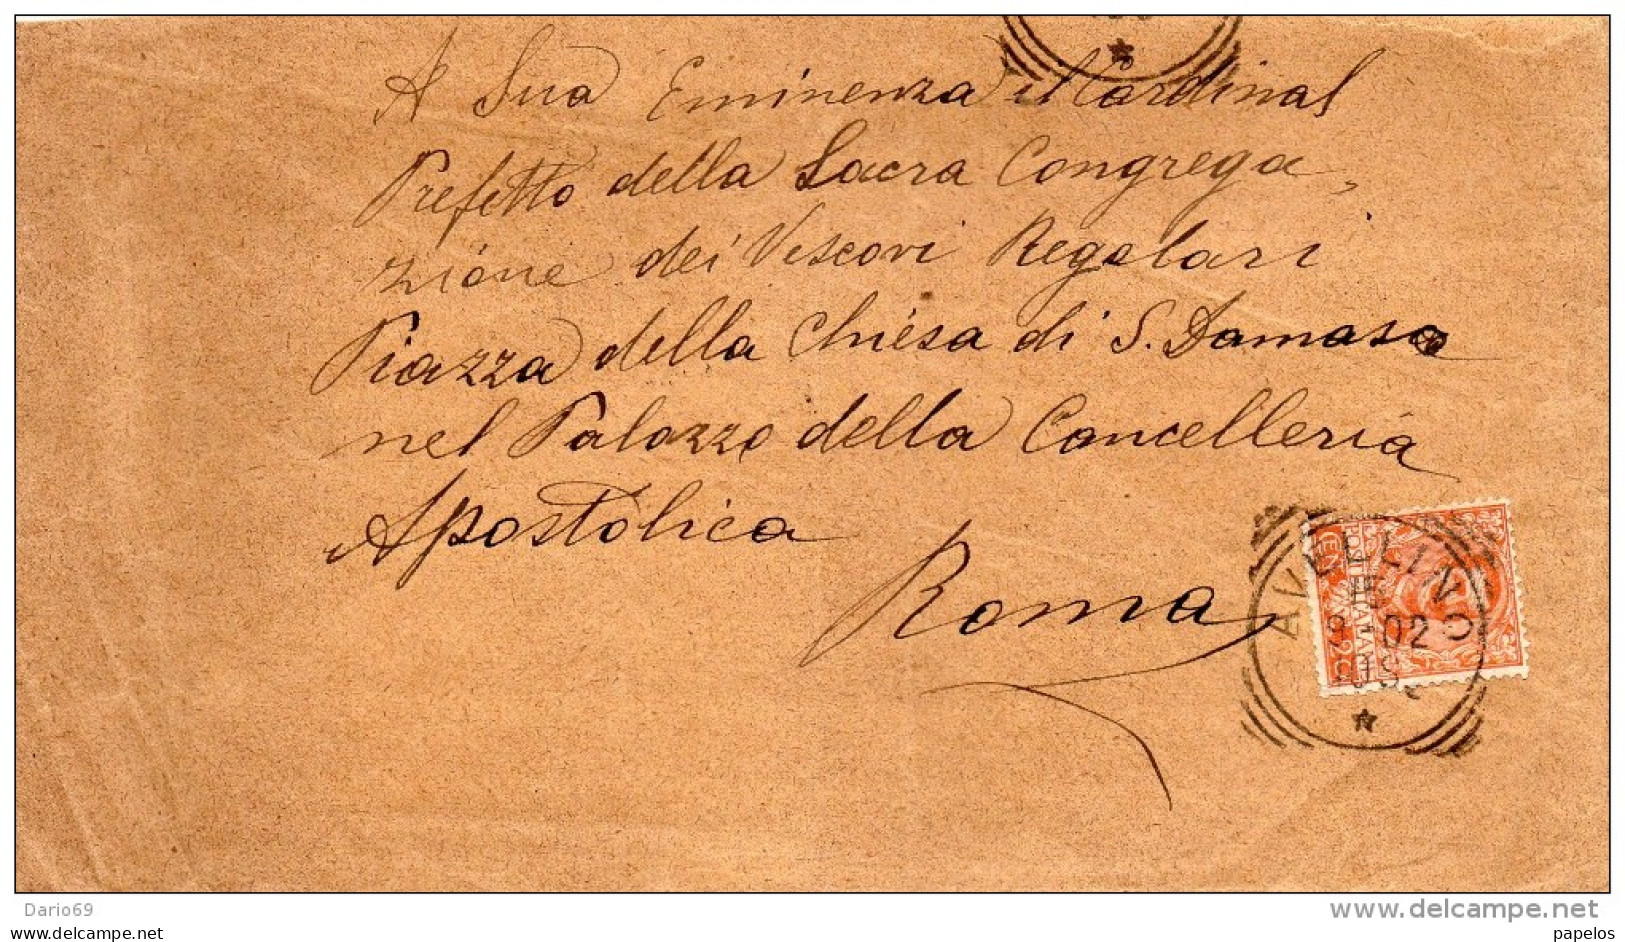 A Sua Eminenza il Cardinal
Prefetto della Sacra Congrega
zione dei Vescovi Regolari
Piazza della Chiesa di S. Damaso
nel Palazzo della Cancelleria
Apostolica
Roma
AVELLINO
02
Dario69
www.delcampe.net
papelos